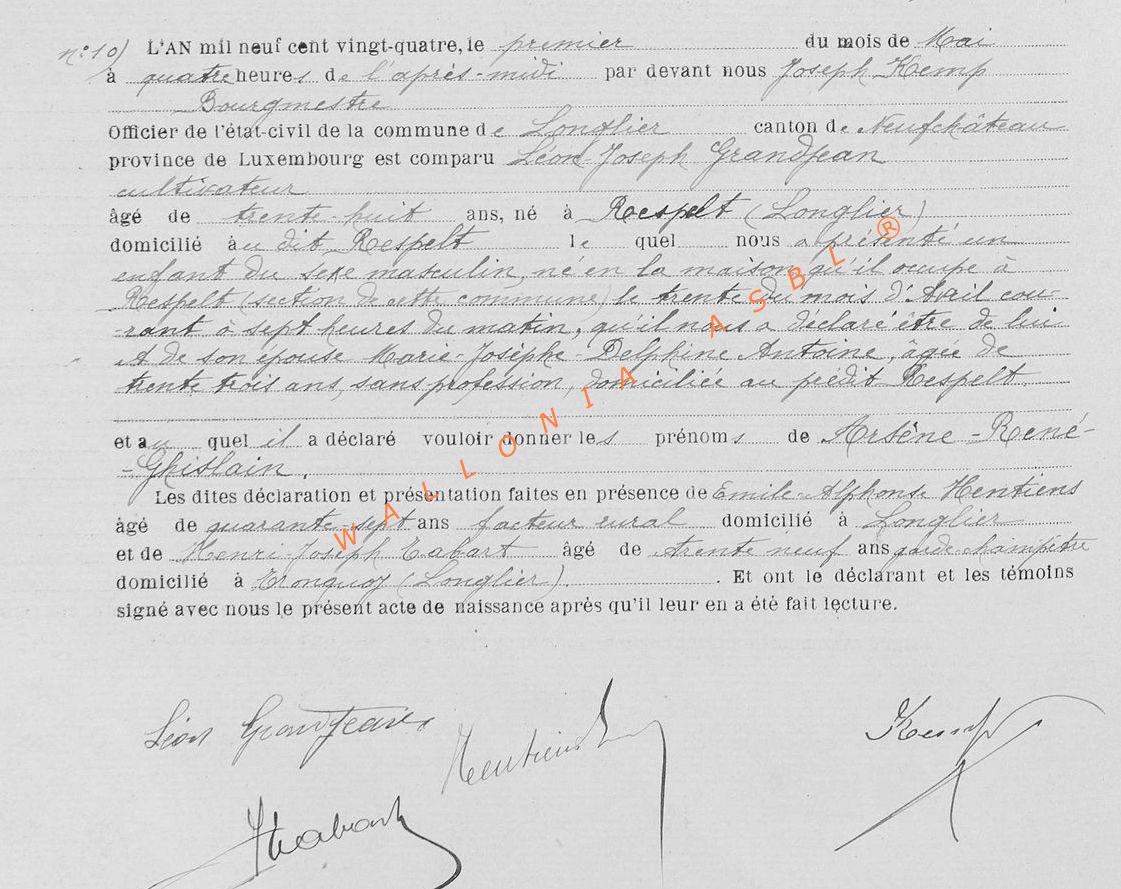 n° 10) L'AN mil neuf cent vingt-quatre, le premier du mois de Mai
à quatre heures de l'après-midi par devant nous Joseph Kemp
Bourgmestre
Officier de l'état-civil de la commune de Longlier canton de Neufchâteau
province de Luxembourg est comparu Léon Joseph Grandjean
cultivateur
âgé de trente-huit ans, né à Respelt (Longlier)
domicilié au dit Respelt lequel nous a présenté un
enfant du sexe masculin, né en la maison qu'il occupe à
Respelt (section de cette commune) le trente du mois d'Avril cou-
-rant à sept heures du matin, qu'il nous a déclaré être de lui
et de son épouse Marie-Josèphe-Delphine Antoine, âgée de
trente trois ans, sans profession, domiciliée au prédit Respelt.
et auquel il a déclaré vouloir donner les prénoms de Arsène-René-
-Ghislain.
Les dites déclaration et présentation faites en présence de Emile-Alphonse Hentiens
âgé de quarante-sept ans facteur rural domicilié à Longlier
et de Henri-Joseph Tabart âgé de trente neuf ans garde champêtre
domicilié à Tronquoy (Longlier). . Et ont le déclarant et les témoins
signé avec nous le présent acte de naissance après qu'il leur en a été fait lecture.
Léon Grandjean
Hentiens
Kemp
Tabart
WALLONIA ASBL ®